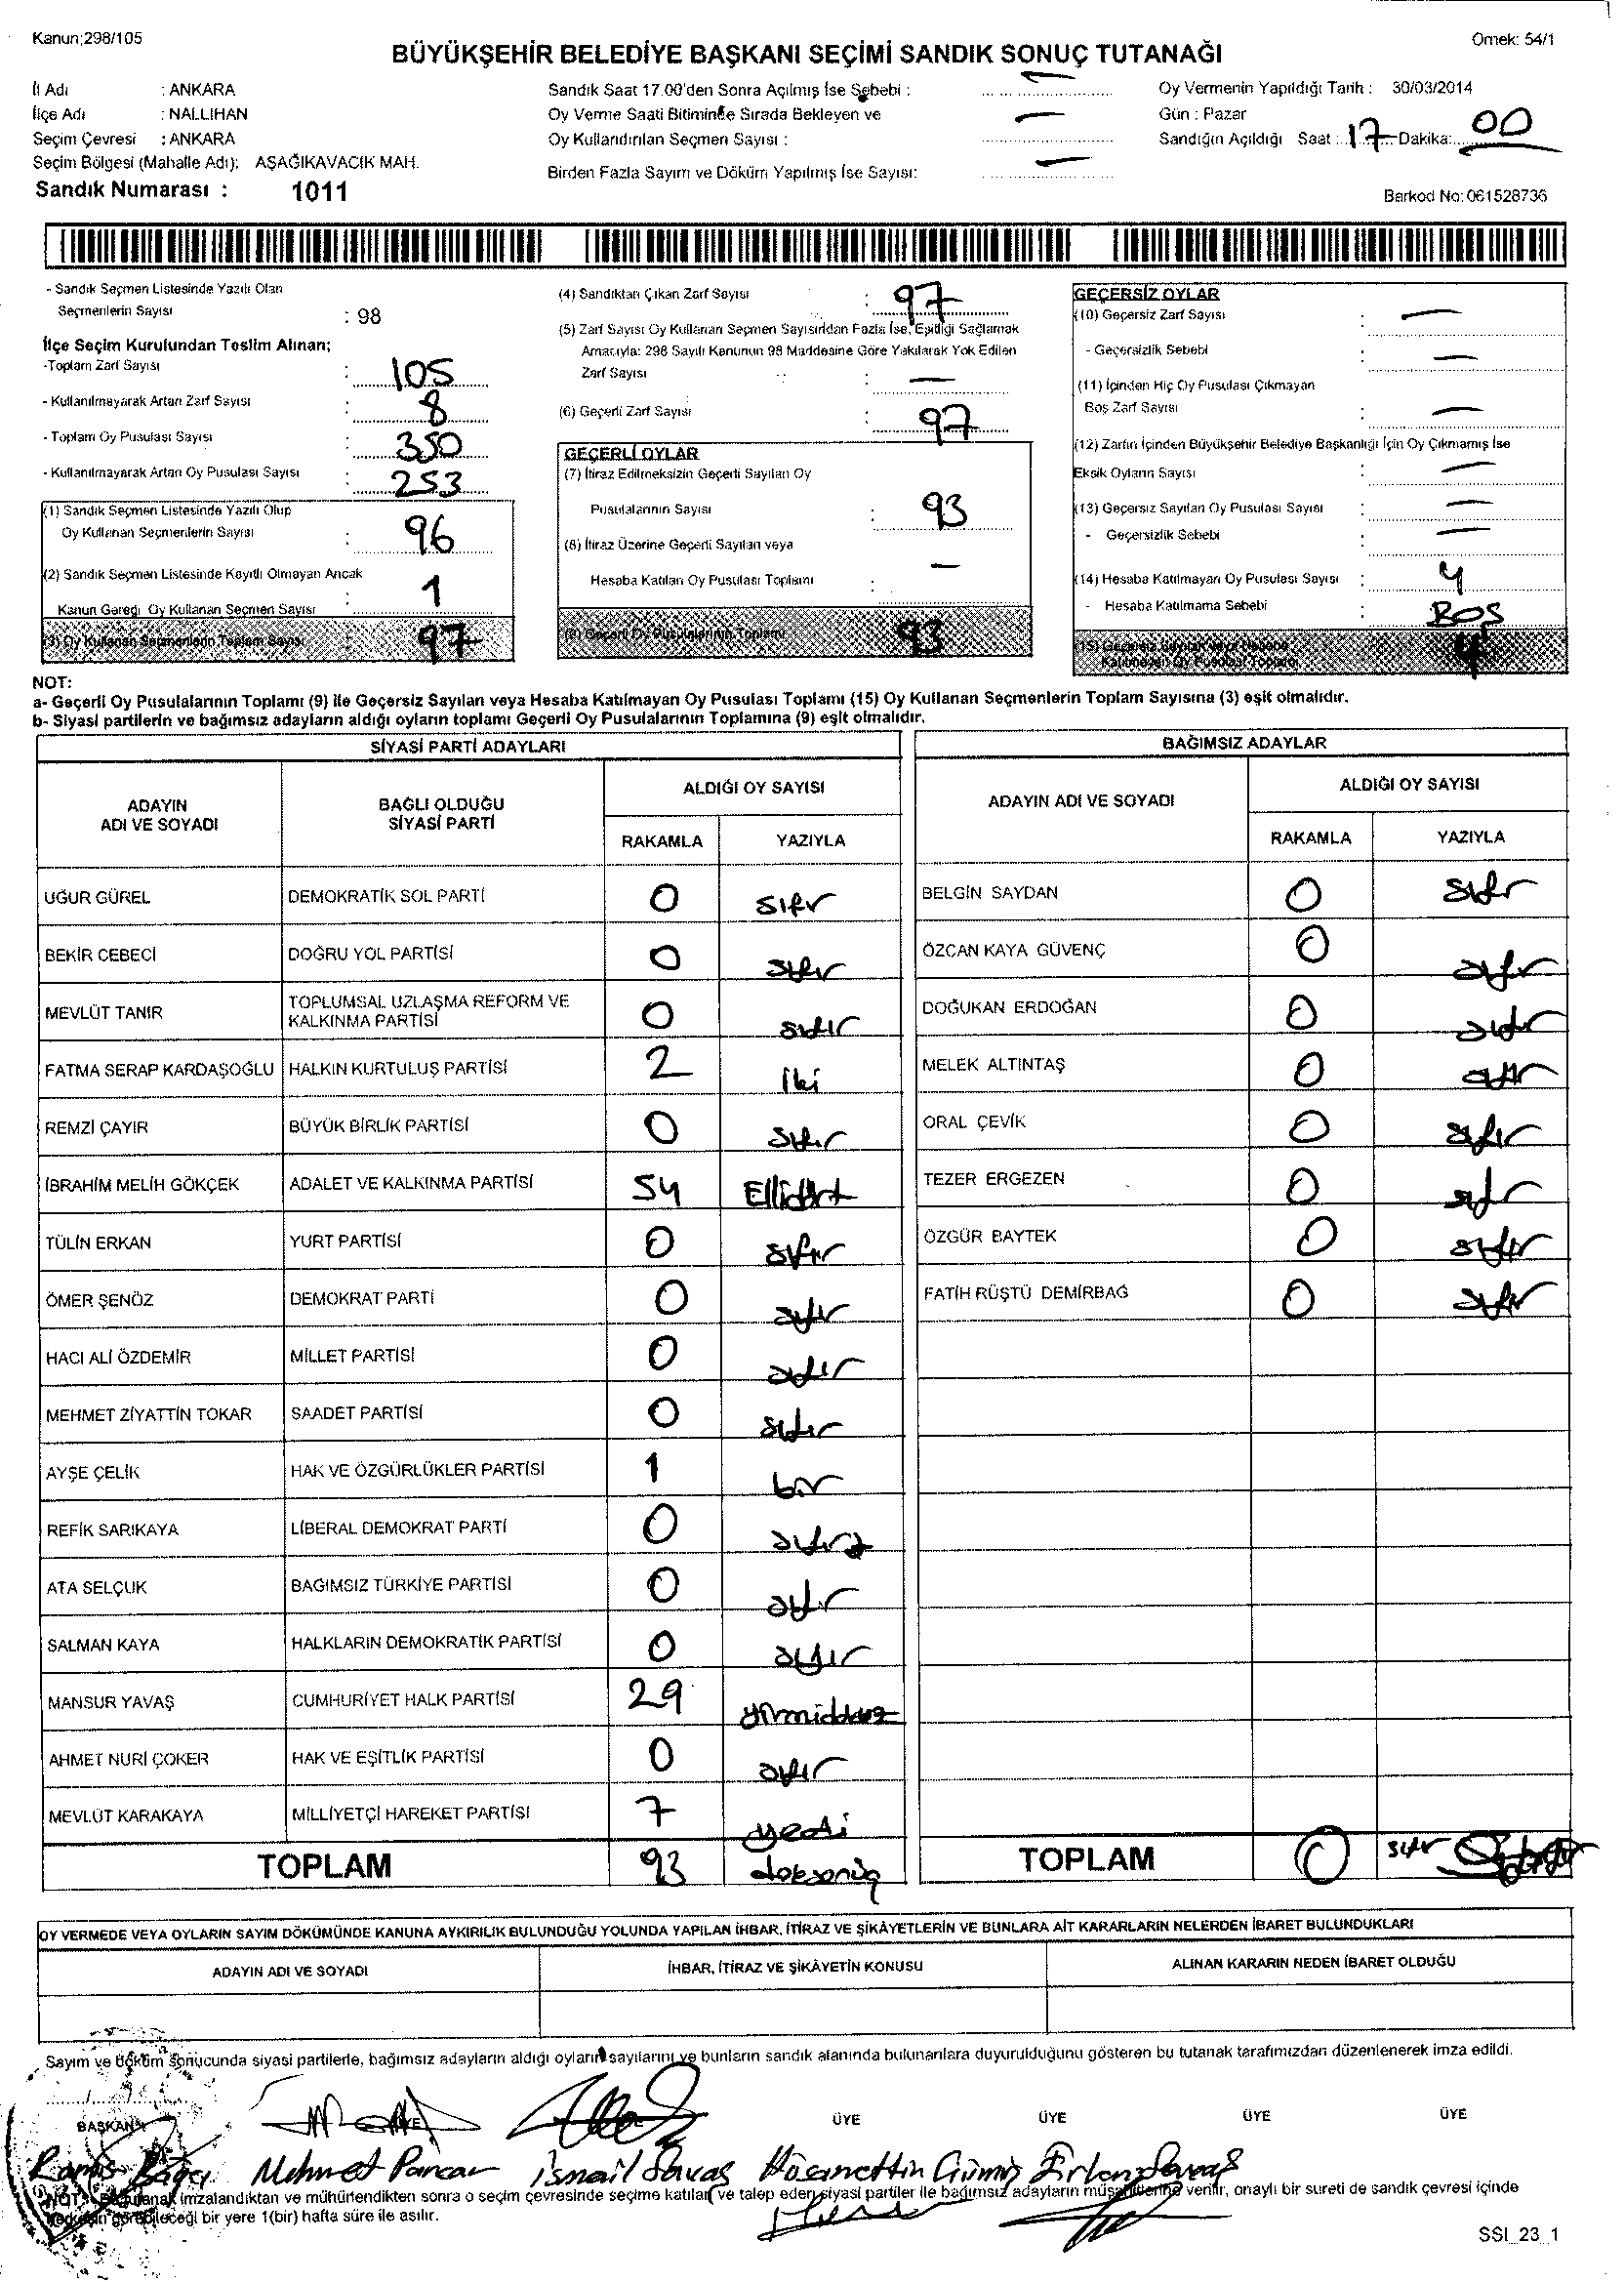 Kanun;298/105
Örnek: 54/1
BÜYÜKŞEHİR BELEDİYE BAŞKANI SEÇİMİ SANDIK SONUÇ TUTANAĞI
İl Adı : ANKARA
İlçe Adı : NALLIHAN
Seçim Çevresi : ANKARA
Seçim Bölgesi (Mahalle Adı); AŞAĞIKAVACIK MAH.
Sandık Numarası : 1011
Sandık Saat 17.00'den Sonra Açılmış İse Sebebi : —
Oy Verme Saati Bitiminde Sırada Bekleyen ve
Oy Kullandırılan Seçmen Sayısı : —
Birden Fazla Sayım ve Döküm Yapılmış İse Sayısı: —
Oy Vermenin Yapıldığı Tarih : 30/03/2014
Gün : Pazar
Sandığın Açıldığı Saat : 17 Dakika: 00
Barkod No: 061528736
- Sandık Seçmen Listesinde Yazılı Olan
Seçmenlerin Sayısı : 98
İlçe Seçim Kurulundan Teslim Alınan;
-Toplam Zarf Sayısı : 105
- Kullanılmayarak Artan Zarf Sayısı : 8
- Toplam Oy Pusulası Sayısı : 350
- Kullanılmayarak Artan Oy Pusulası Sayısı : 253
(1) Sandık Seçmen Listesinde Yazılı Olup
Oy Kullanan Seçmenlerin Sayısı : 96
(2) Sandık Seçmen Listesinde Kayıtlı Olmayan Ancak
Kanun Gereği Oy Kullanan Seçmen Sayısı : 1
(3) Oy Kullanan Seçmenlerin Toplam Sayısı : 97
(4) Sandıktan Çıkan Zarf Sayısı : 97
(5) Zarf Sayısı Oy Kullanan Seçmen Sayısından Fazla İse, Eşitliği Sağlamak
Amacıyla: 298 Sayılı Kanunun 98 Maddesine Göre Yakılarak Yok Edilen
Zarf Sayısı : —
(6) Geçerli Zarf Sayısı : 97
GEÇERLİ OYLAR
(7) İtiraz Edilmeksizin Geçerli Sayılan Oy
Pusulalarının Sayısı : 93
(8) İtiraz Üzerine Geçerli Sayılan veya
Hesaba Katılan Oy Pusulası Toplamı : —
(9) Geçerli Oy Pusulalarının Toplamı 93
GEÇERSİZ OYLAR
(10) Geçersiz Zarf Sayısı : —
- Geçersizlik Sebebi : —
(11) İçinden Hiç Oy Pusulası Çıkmayan
Boş Zarf Sayısı : —
(12) Zarfın İçinden Büyükşehir Belediye Başkanlığı İçin Oy Çıkmamış İse
Eksik Oyların Sayısı : —
(13) Geçersiz Sayılan Oy Pusulası Sayısı : —
- Geçersizlik Sebebi : —
(14) Hesaba Katılmayan Oy Pusulası Sayısı : 4
- Hesaba Katılmama Sebebi : BOŞ
(15) Geçersiz Sayılan veya Hesaba
Katılmayan Oy Pusulası Toplamı 4
NOT:
a- Geçerli Oy Pusulalarının Toplamı (9) ile Geçersiz Sayılan veya Hesaba Katılmayan Oy Pusulası Toplamı (15) Oy Kullanan Seçmenlerin Toplam Sayısına (3) eşit olmalıdır.
b- Siyasi partilerin ve bağımsız adayların aldığı oyların toplamı Geçerli Oy Pusulalarının Toplamına (9) eşit olmalıdır.
SİYASİ PARTİ ADAYLARI
ADAYIN ADI VE SOYADI
BAĞLI OLDUĞU SİYASİ PARTİ
ALDIĞI OY SAYISI
RAKAMLA YAZIYLA
UĞUR GÜREL DEMOKRATİK SOL PARTİ 0 sıfır
BEKİR CEBECİ DOĞRU YOL PARTİSİ 0 sıfır
MEVLÜT TANIR TOPLUMSAL UZLAŞMA REFORM VE KALKINMA PARTİSİ 0 sıfır
FATMA SERAP KARDAŞOĞLU HALKIN KURTULUŞ PARTİSİ 2 iki
REMZİ ÇAYIR BÜYÜK BİRLİK PARTİSİ 0 sıfır
İBRAHİM MELİH GÖKÇEK ADALET VE KALKINMA PARTİSİ 54 Ellidört
TÜLİN ERKAN YURT PARTİSİ 0 sıfır
ÖMER ŞENÖZ DEMOKRAT PARTİ 0 sıfır
HACI ALİ ÖZDEMİR MİLLET PARTİSİ 0 sıfır
MEHMET ZİYATTİN TOKAR SAADET PARTİSİ 0 sıfır
AYŞE ÇELİK HAK VE ÖZGÜRLÜKLER PARTİSİ 1 bir
REFİK SARIKAYA LİBERAL DEMOKRAT PARTİ 0 sıfır
ATA SELÇUK BAĞIMSIZ TÜRKİYE PARTİSİ 0 sıfır
SALMAN KAYA HALKLARIN DEMOKRATİK PARTİSİ 0 sıfır
MANSUR YAVAŞ CUMHURİYET HALK PARTİSİ 29 yirmidokuz
AHMET NURİ ÇOKER HAK VE EŞİTLİK PARTİSİ 0 sıfır
MEVLÜT KARAKAYA MİLLİYETÇİ HAREKET PARTİSİ 7 yedi
TOPLAM 93 doksanüç
BAĞIMSIZ ADAYLAR
ADAYIN ADI VE SOYADI
ALDIĞI OY SAYISI
RAKAMLA YAZIYLA
BELGİN SAYDAN 0 sıfır
ÖZCAN KAYA GÜVENÇ 0 sıfır
DOĞUKAN ERDOĞAN 0 sıfır
MELEK ALTINTAŞ 0 sıfır
ORAL ÇEVİK 0 sıfır
TEZER ERGEZEN 0 sıfır
ÖZGÜR BAYTEK 0 sıfır
FATİH RÜŞTÜ DEMİRBAĞ 0 sıfır
TOPLAM 0 sıfır
OY VERMEDE VEYA OYLARIN SAYIM DÖKÜMÜNDE KANUNA AYKIRILIK BULUNDUĞU YOLUNDA YAPILAN İHBAR, İTİRAZ VE ŞİKÂYETLERİN VE BUNLARA AİT KARARLARIN NELERDEN İBARET BULUNDUKLARI
ADAYIN ADI VE SOYADI İHBAR, İTİRAZ VE ŞİKÂYETİN KONUSU ALINAN KARARIN NEDEN İBARET OLDUĞU
Sayım ve döküm sonucunda siyasi partilerle, bağımsız adayların aldığı oyların sayılarını ve bunların sandık alanında bulunanlara duyurulduğunu gösteren bu tutanak tarafımızdan düzenlenerek imza edildi.
BAŞKAN ÜYE ÜYE ÜYE ÜYE ÜYE
Mehmet Pancar İsmail Savaş Hüsamettin Gümüş
imzalandıktan ve mühürlendikten sonra o seçim çevresinde seçime katılan ve talep eden siyasi partiler ile bağımsız adayların müşahitlerine verilir, onaylı bir sureti de sandık çevresi içinde
görebileceği bir yere 1(bir) hafta süre ile asılır.
SSI_23_1